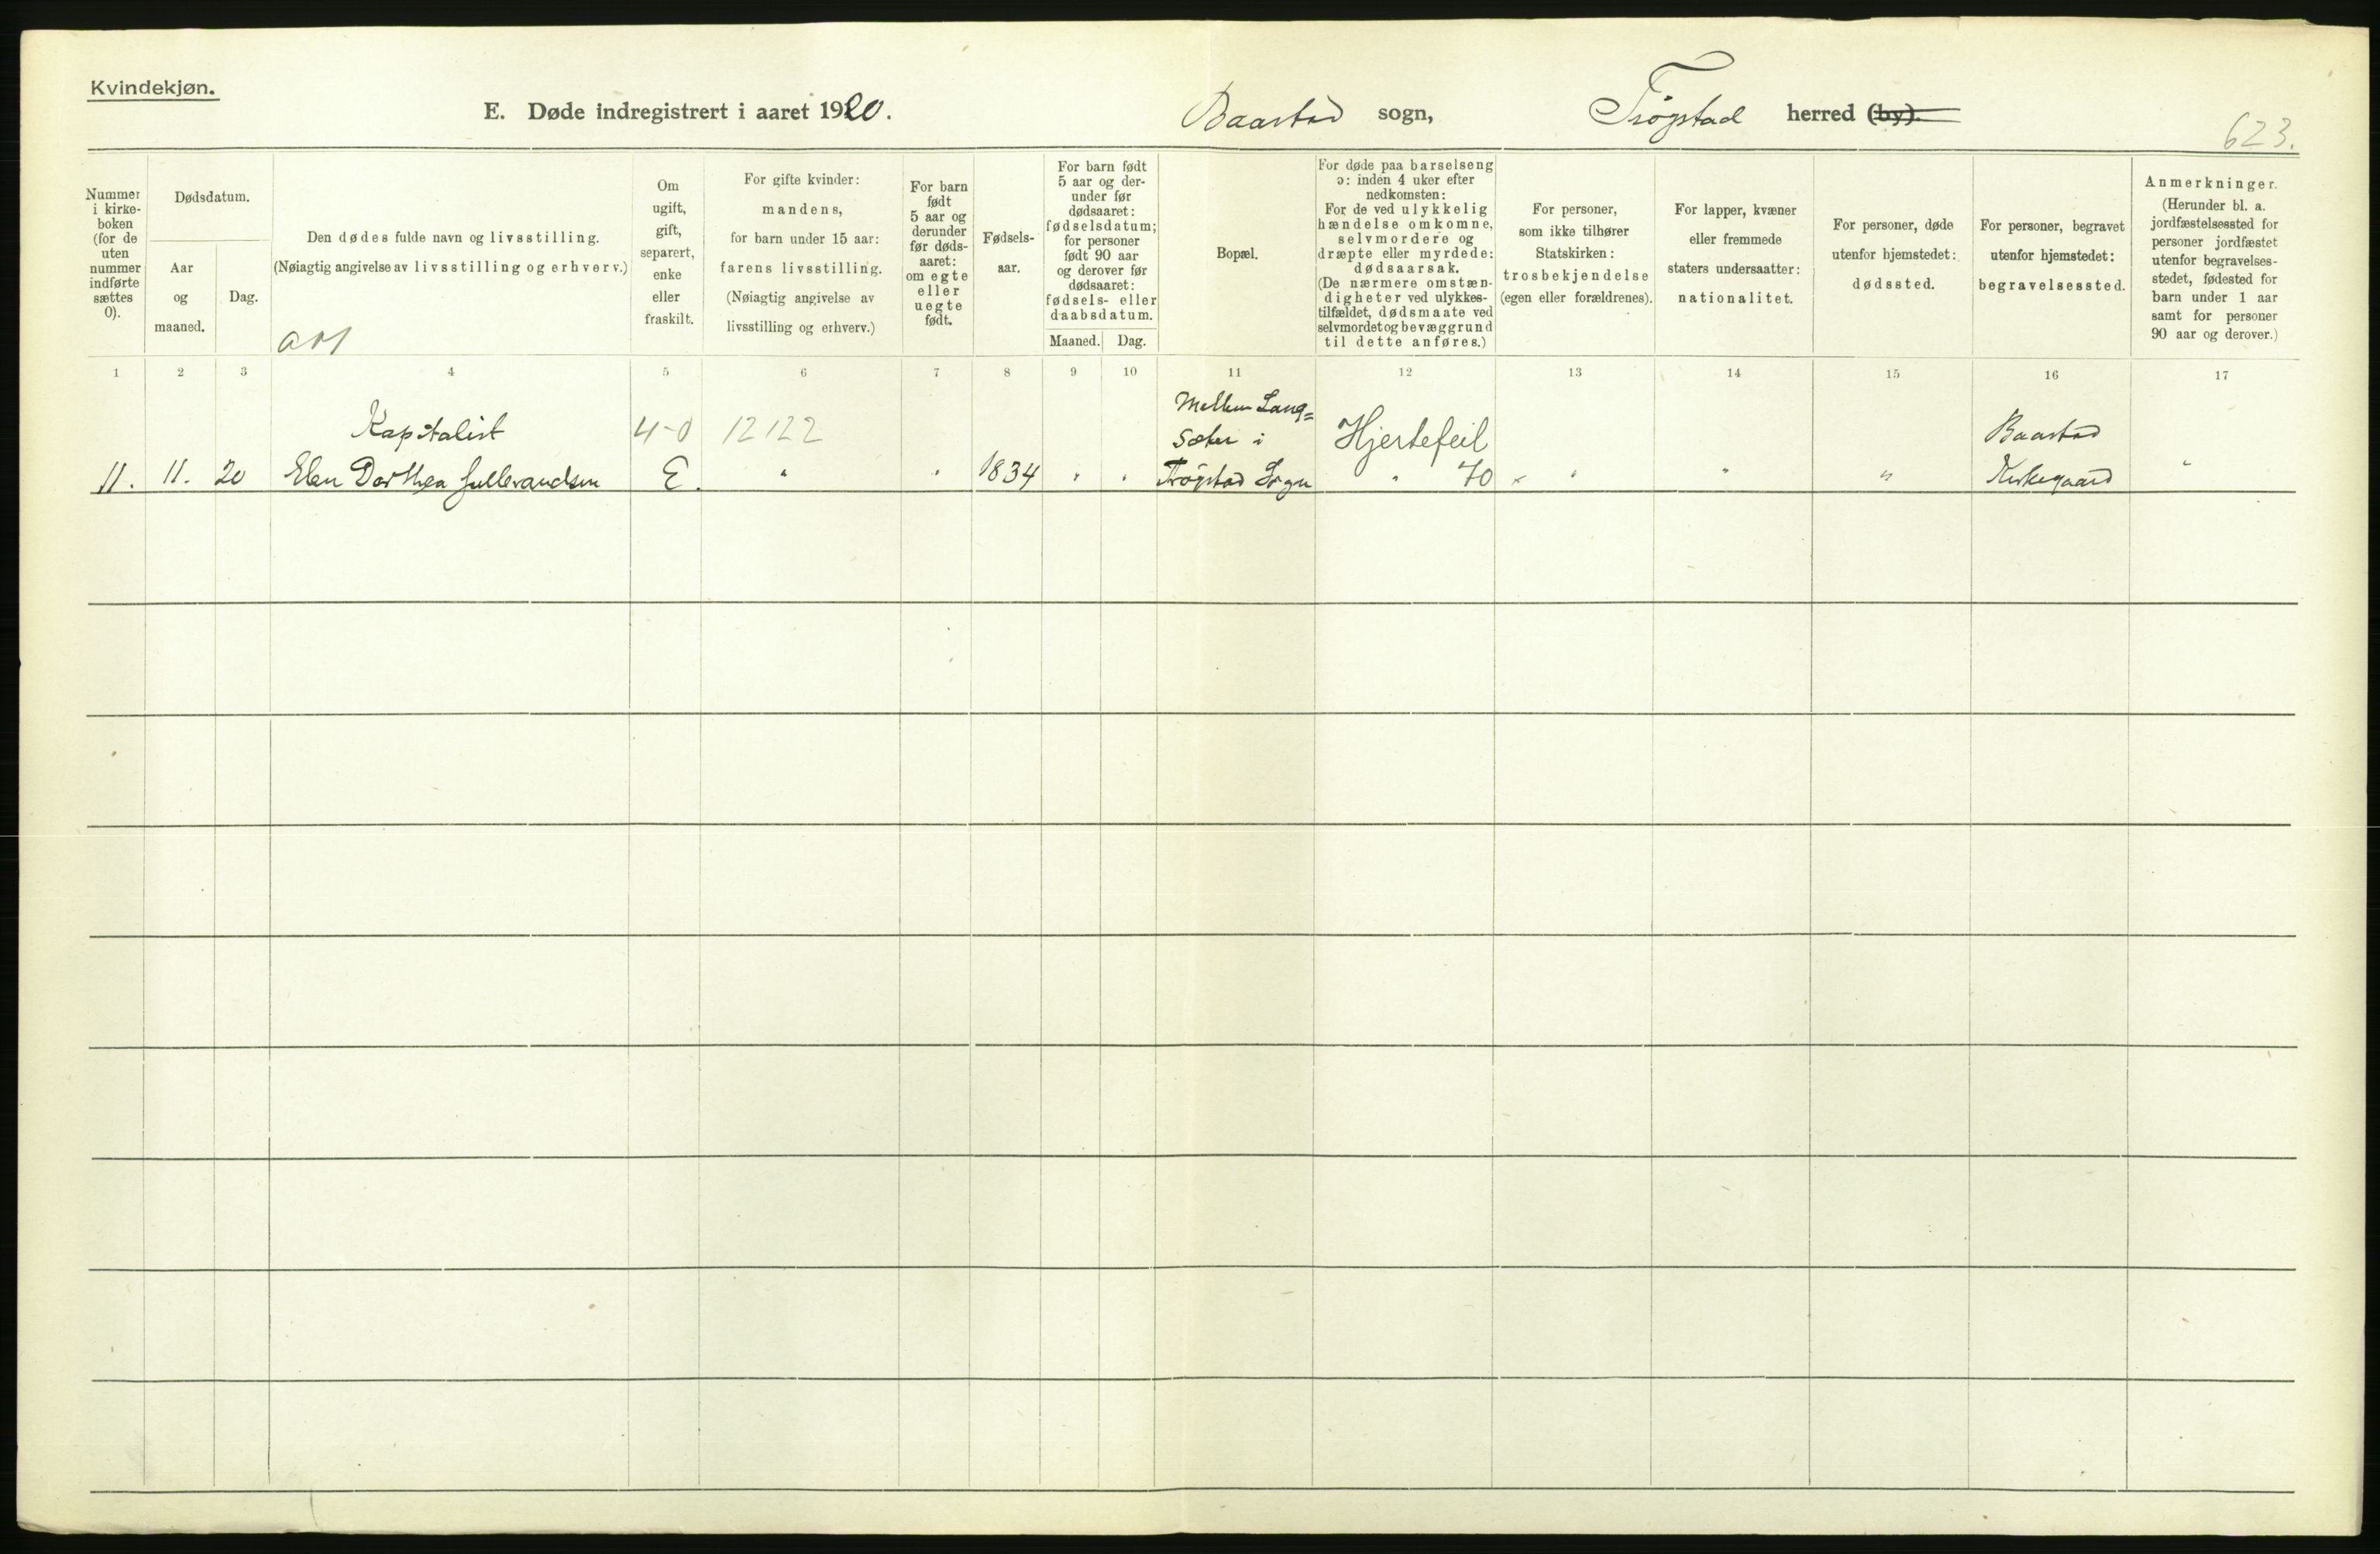 Kvindekjøn.
E. Døde indregistrert i aaret 1920.
Baastad sogn,
Trøgstad herred (by).
623.
Nummer i kirke-
boken
(for de
uten
nummer
indførte
sættes
0).
Dødsdatum.
Aar
og
maaned.
Dag.
Den dødes fulde navn og livsstilling.
(Nøiagtig angivelse av livsstilling og erhverv.)
Om
ugift,
gift,
separert,
enke
eller
fraskilt.
For gifte kvinder:
mandens,
for barn under 15 aar:
farens livsstilling.
(Nøiagtig angivelse av
livsstilling og erhverv.)
For barn
født
5 aar og
derunder
før døds-
aaret:
om egte
eller
uegte
født.
Fødsels-
aar.
For barn født
5 aar og der-
under før
dødsaaret:
fødselsdatum;
for personer
født 90 aar
og derover før
dødsaaret:
fødsels- eller
daabsdatum.
Maaned. Dag.
Bopæl.
For døde paa barselseng
ɔ: inden 4 uker efter
nedkomsten:
For de ved ulykkelig
hændelse omkomne,
selvmordere og
dræpte eller myrdede:
dødsaarsak.
(De nærmere omstæn-
digheter ved ulykkes-
tilfældet, dødsmaate ved
selvmordet og bevæggrund
til dette anføres.)
For personer,
som ikke tilhører
Statskirken:
trosbekjendelse
(egen eller forældrenes).
For lapper, kvæner
eller fremmede
staters undersaatter:
nationalitet.
For personer, døde
utenfor hjemstedet:
dødssted.
For personer, begravet
utenfor hjemstedet:
begravelsessted.
Anmerkninger.
(Herunder bl. a.
jordfæstelsessted for
personer jordfæstet
utenfor begravelses-
stedet, fødested for
barn under 1 aar
samt for personer
90 aar og derover.)
1 2 3 4 5 6 7 8 9 10 11 12 13 14 15 16 17
Kapitalist
4-0 12122
Mellem Lang=
Sæter i
Hjertefeil
Baastad
11. 11. 20 Elen Dorthea E. " " 1834 " " Trøgstad Sogn " 70 × " " " Kirkegaard "